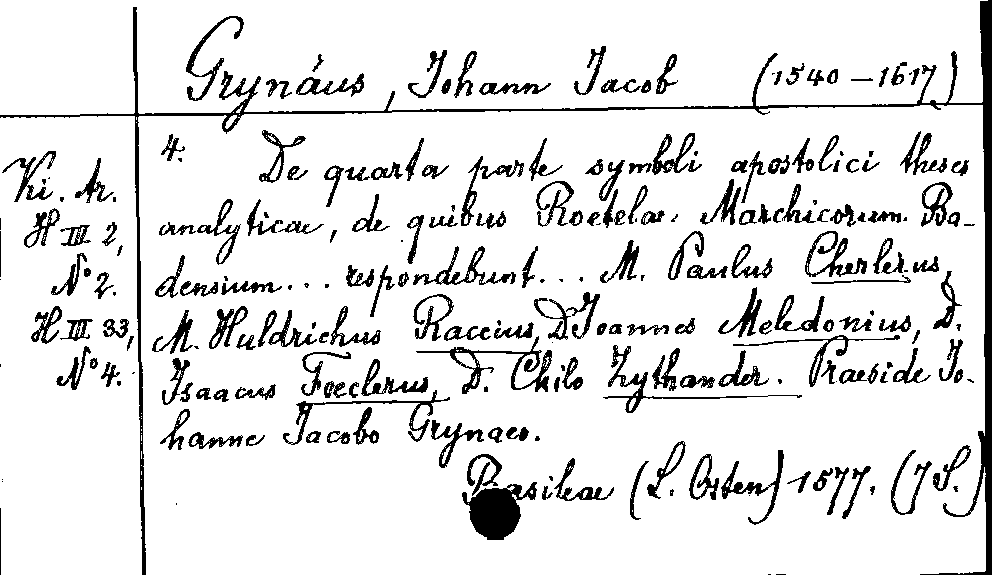 Grynäus, Johann Jacob (1540–1617)
4. De quarta parte symboli apostolici theses
Ki. Ar. analyticae, de quibus Roetelae Marchicorum Ba-
H III 2, densium... respondebunt... M. Paulus Cherlerus,
N° 2.
H III 33, M. Huldrichus Raccius, D. Joannes Meledonius, D.
N° 4. Isaacus Foeclerus, D. Chilo Zythander. Praeside Jo-
hanne Jacobo Grynaeo.
Basileae (L. Osten) 1577. (7 S.)